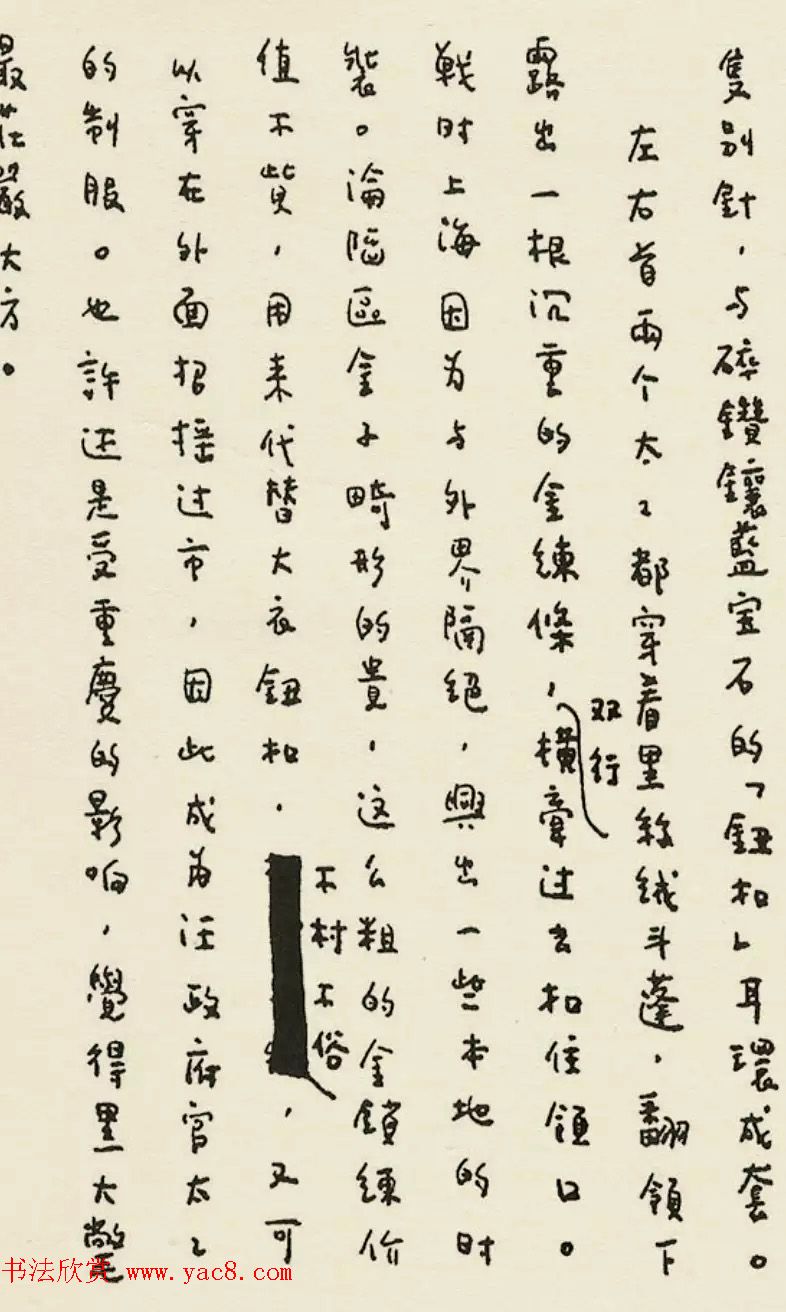 隻别針，与碎鑽鑲藍宝石的「鈕扣」耳環成套。
左右首兩个太〻都穿着黑絲絨斗蓬，翻領下
双行
露出一根沉重的金練條，横牽过去扣住領口。
戰时上海因为与外界隔絕，興出一些本地的时
裝。淪陷區金子畸形的貴，这么粗的金鎖練价
不村不俗
值不貲，用来代替大衣鈕扣，，又可
以穿在外面招摇过市，因此成为汪政府官太〻
的制服。也許还是受重慶的影响，覺得黑大氅
最莊嚴大方。
书法欣赏 www.yac8.com